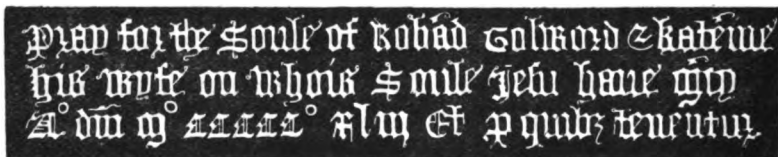 Pray for the Soule of Robād Golword & kateīne
his wyfe on whois Soule Jesu haue m̄cy
A° dm̄ m° ccccc° xliij Et ꝑ quibꝫ tenentur